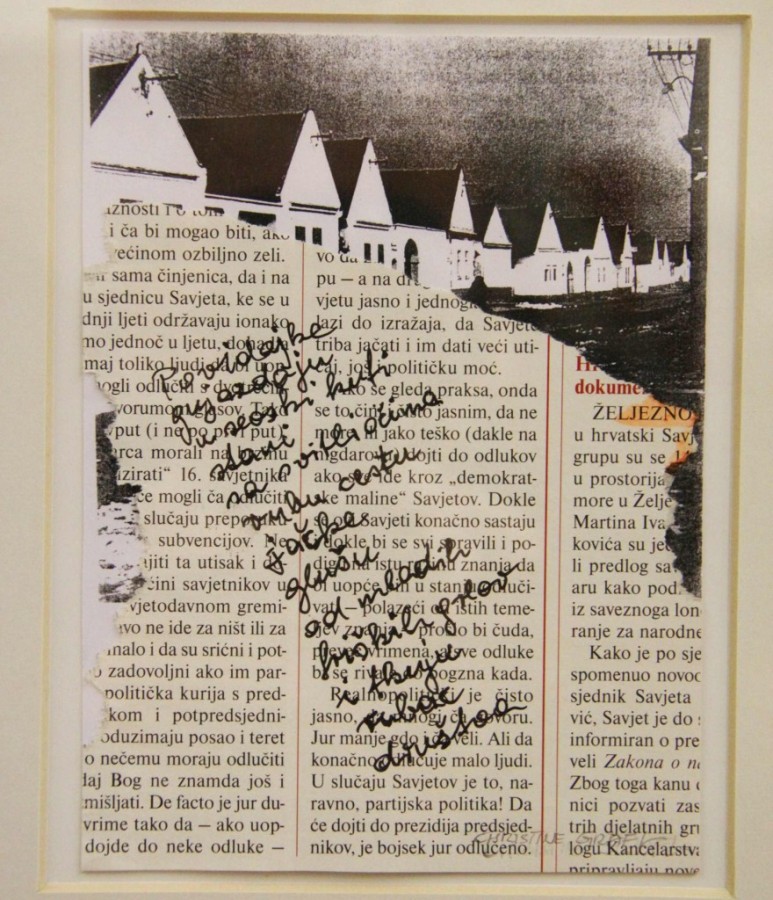 i o tom
i ča bi mogao biti, ako
većinom ozbiljno zeli.
sama činjenica, da i na
u sjednicu Savjeta, ke se u
dnji ljeti održavaju ionako
mo jednoč u ljetu,
maj toliko ljudi
mogli odlučiti s
Tako
put (i ne po prvi put)
arca morali na
zirati“ 16. savjetnika
ce mogli ča odlučiti
slučaju
subvencijov. Ne
ajiti ta utisak i
čini savjetnikov u
vjetodavnom gremi-
avo ne ide za ništ ili za
malo i da su srićni i pot-
o zadovoljni ako im par-
politička kurija s pred-
kom i potpredsjedni-
oduzimaju posao i teret
o nečemu moraju odlučiti
daj Bog ne znamda još i
zmišljati. De facto je jur du-
vrime tako da – ako uop-
dojde do neke odluke –
vo da
pu – a na
vjetu jasno i
lazi do izražaja, da Savjete
triba jačati i im dati veći uti-
caj, još i političku moć.
Ako se gleda praksa, onda
se to čini čisto jasnim, da ne
more ili jako teško (dakle na
nigdar) dojti do odlukov
ako se ide kroz „demokrat-
ske maline“ Savjetov. Dokle
se ovi Savjeti konačno sastaju
i dokle bi se svi spravili i po-
digli na istu znanja da
bi uopće bili u stanju odluči-
vati – polazeći od istih teme-
ljev znanja – prošlo bi čuda,
vrimena, a sve odluke
bi se bogzna kada.
Realnopolitički je čisto
jasno,
Jur manje gdo i Ali da
konačno odlučuje malo ljudi.
U slučaju Savjetov je to, na-
ravno, partijska politika! Da
će dojti do prezidija predsjed-
nikov, je bojsek jur odlučeno.
dokume
ŽELJEZNO
u hrvatski Savj
grupu su se
u prostorija
more u Želje
Martina Iva
kovića su jed
li predlog sa
aru kako pod
iz saveznoga lon
ranje za narodne
Kako je po sje
spomenuo novoo
sjednik Savjeta
vić, Savjet je do
informiran o pre
veli Zakona o n
Zbog toga kanu
nici pozvati zas
trih djelatnih gru
logu Kancelarstva
pripravljaju nove
Povidajke
gnjazdaju
u seoski kuti
stari
sa svitli očima
rubu cestu
jačke
glušu
od mladih
grlov
i tkaju
rubac
društva
CHRISTINE